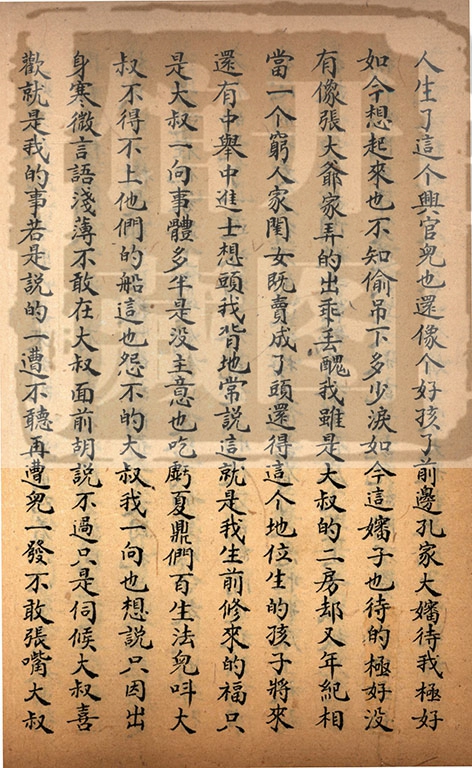 人生了這个興官兒也還像个好孩子前邊孔家大嬸待我極好
如今想起來也不知偷吊下多少淚如今這嬸子也待的極好没
有像張大爺家弄的出乖丢醜我雖是大叔的二房却又年紀相
當一个窮人家閨女既賣成了頭還得這个地位生的孩子將來
還有中舉中進士想頭我背地常説這就是我生前修來的福只
是大叔一向事體多半是没主意也吃虧夏鼎們百生法兒呌大
叔不得不上他們的船這也怨不的大叔我一向也想説只因出
身寒微言語淺薄不敢在大叔面前胡説不過只是伺候大叔喜
歡就是我的事若是説的一遭不聽再遭兒一發不敢張嘴大叔